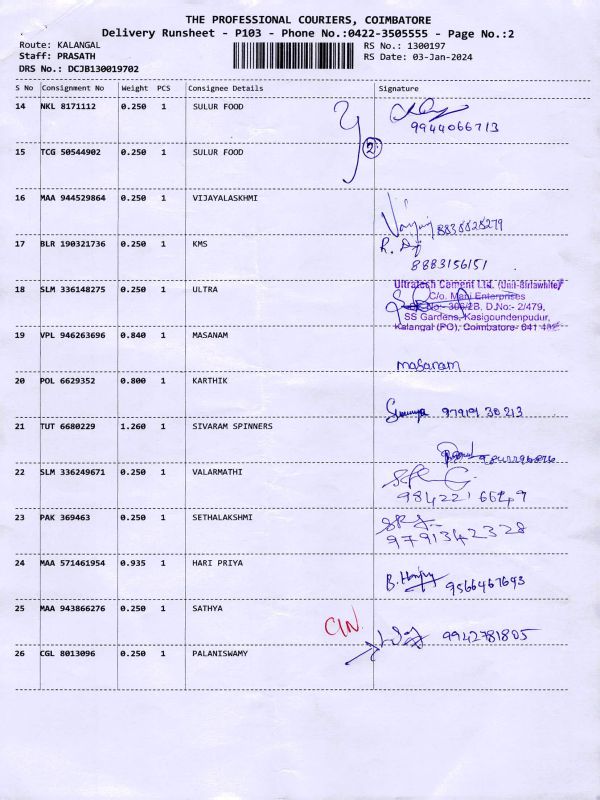 THE PROFESSIONAL COURIERS, COIMBATORE
Delivery Runsheet - P103 - Phone No.:0422-3505555 - Page No.:2
Route: KALANGAL RS No.: 1300197
Staff: PRASATH RS Date: 03-Jan-2024
DRS No.: DCJB130019702
S No Consignment No Weight PCS Consignee Details Signature
14 NKL 8171112 0.250 1 SULUR FOOD
9944066713
2
15 TCG 50544902 0.250 1 SULUR FOOD
16 MAA 944529864 0.250 1 VIJAYALASKHMI
8838828279
17 BLR 190321736 0.250 1 KMS
8883156151
18 SLM 336148275 0.250 1 ULTRA
Ultratech Cement Ltd. (Unit-Birlawhite)
C/o. Mani Enterprises
No:- 306/2B, D.No:- 2/479,
SS Gardens, Kasigoundenpudur,
Kalangal (PO), Coimbatore- 641 402.
19 VPL 946263696 0.840 1 MASANAM
masanam
20 POL 6629352 0.800 1 KARTHIK
97919 30213
21 TUT 6680229 1.260 1 SIVARAM SPINNERS
22 SLM 336249671 0.250 1 VALARMATHI
9842216649
23 PAK 369463 0.250 1 SETHALAKSHMI
9791342328
24 MAA 571461954 0.935 1 HARI PRIYA
9566467643
25 MAA 943866276 0.250 1 SATHYA
CIN
9942781805
26 CGL 8013096 0.250 1 PALANISWAMY